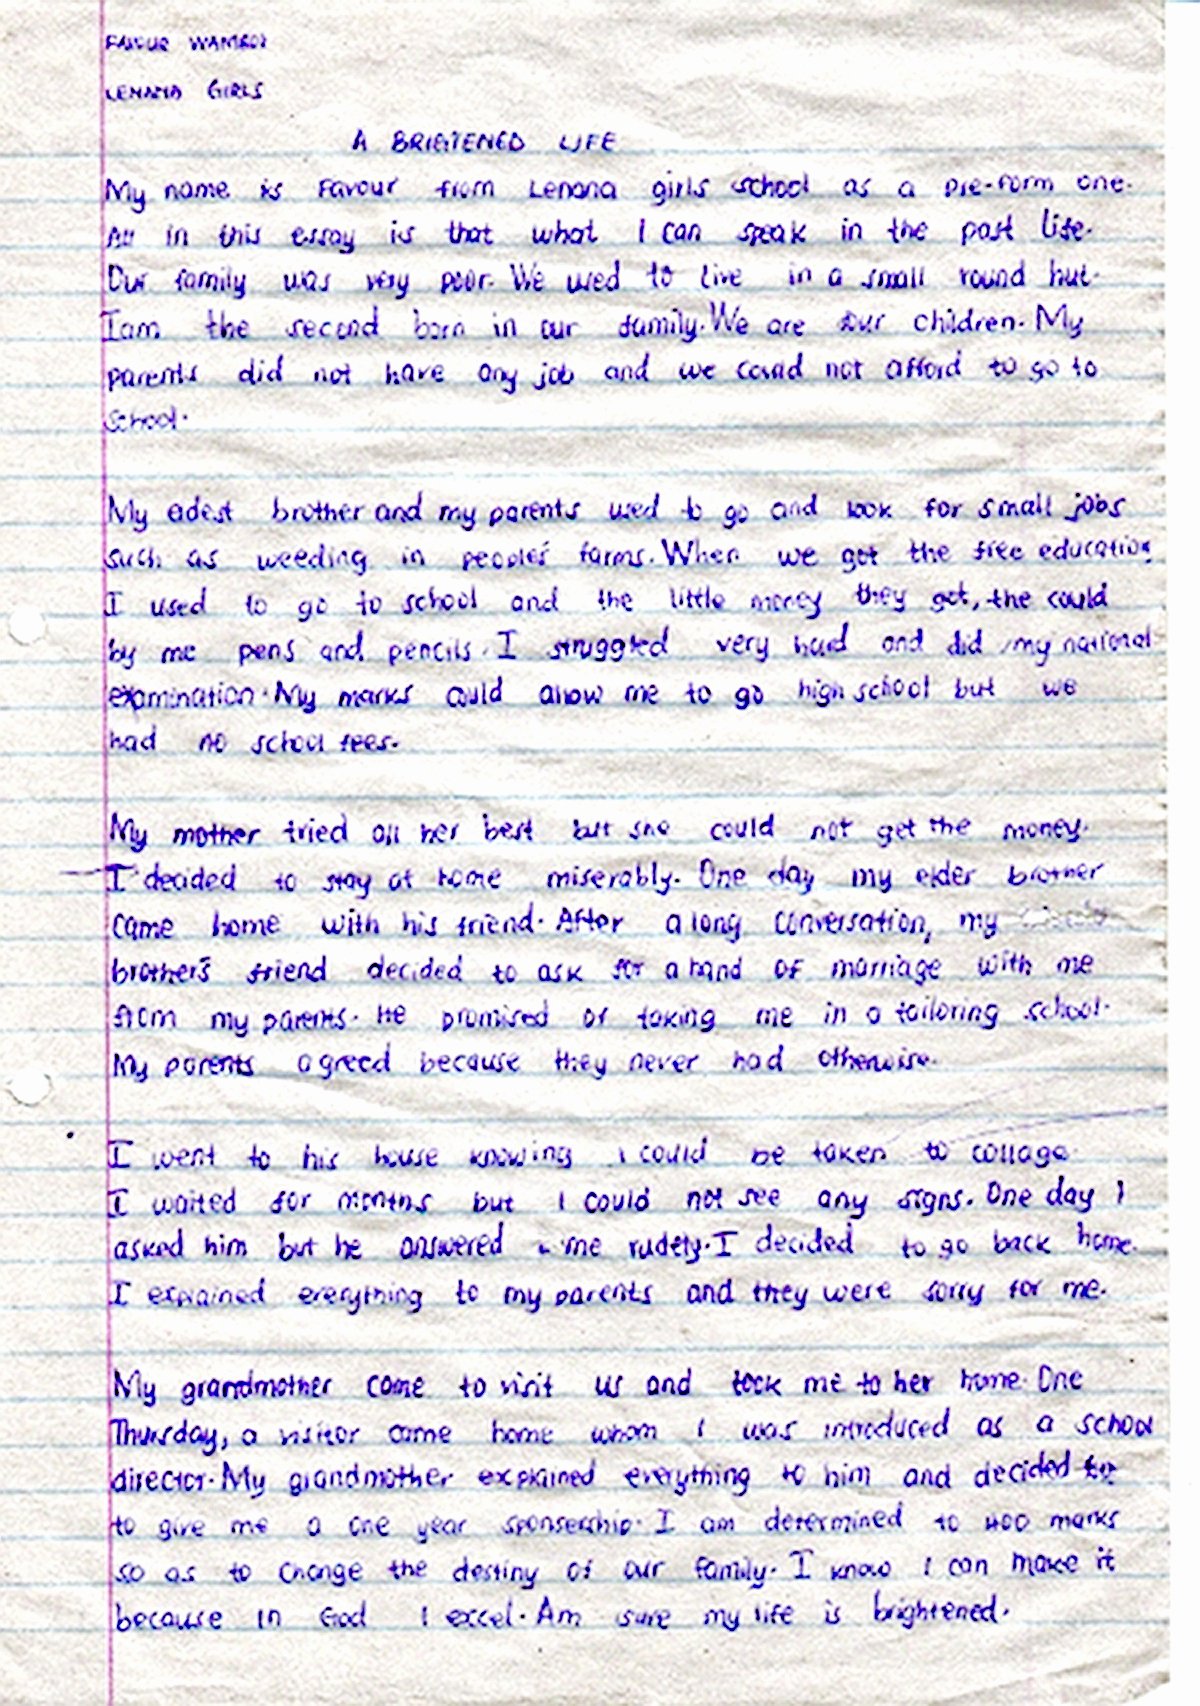 FAVOUR WAMBOI
LENANA GIRLS
A BRIGTENED LIFE
My name is Favour from Lenana girls school as a pre-form one.
All in this essay is that what I can speak in the past life.
Our family was very poor. We used to live in a small round hut.
Iam the second born in our family. We are four children. My
parents did not have any job and we could not afford to go to
school.
My edest brother and my parents used to go and look for small jobs
such as weeding in people's farms. When we got the free education
I used to go to school and the little money they got, the could
by me pens and pencils. I struggled very hard and did my national
examination. My marks could allow me to go high school but we
had no school fees.
My mother tried all her best but she could not get the money.
I decided to stay at home miserably. One day my elder brother
came home with his friend. After a long conversation, my
brother's friend decided to ask for a hand of marriage with me
from my parents. He promised of taking me in a tailoring school.
My parents agreed because they never had otherwise.
I went to his house knowing I could be taken to collage
I waited for months but I could not see any signs. One day I
asked him but he answered me rudely. I decided to go back home.
I explained everything to my parents and they were sorry for me.
My grandmother came to visit us and took me to her home. One
Thursday, a visitor came home whom I was introduced as a school
director. My grandmother explained everything to him and decided to
to give me a one year sponsership. I am determined to 400 marks
so as to change the destiny of our family. I know I can make it
because in God I excel. Am sure my life is brightened.